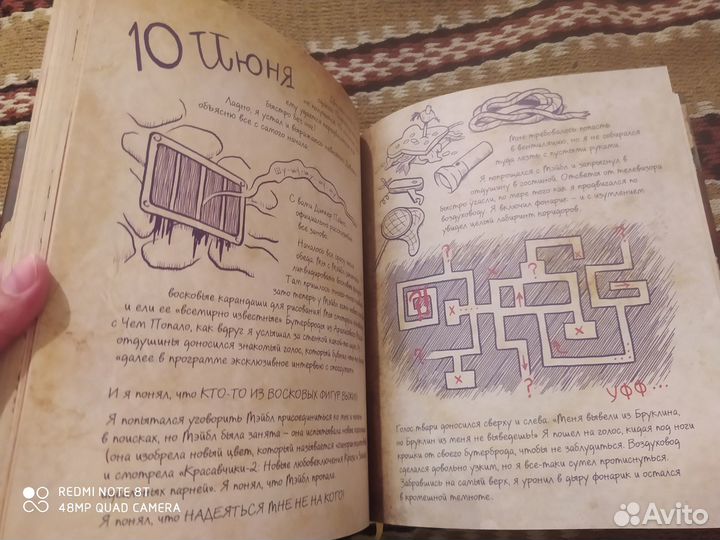 10 Июня
ему удается
не попадаться
быстро без
Ладно, я устал и выражаюсь
объясню все с самого начала.
С вами Диппер Пайнс,
официально расследование
все заново.
Началось все сразу после
обеда. Мы с Мэйбл
ликвидировать восковые
Там пришлось
зато теперь у Мэйбл
восковые карандаши для рисования! Мы смотрели
и ели ее «всемирно известные» бутерброды из
с Чем Попало, как вдруг я услышал за стенкой
отдушины доносился знакомый голос, который
«далее в программе эксклюзивное интервью с
И я понял, что КТО-ТО ИЗ ВОСКОВЫХ ФИГУР ВЫЖИЛ
Я попытался уговорить Мэйбл присоединиться ко мне
в поисках, но Мэйбл была занята – она испытывала новые
(она изобрела новый цвет, который называется
и смотрела «Красавчики-2: Новые любовключения
парней». Я понял, что Мэйбл пропала
Я понял, что НАДЕЯТЬСЯ МНЕ НЕ НА КОГО!
Мне требовалось попасть
в вентиляцию, но я не собирался
туда лезть с пустыми руками.
Я попрощался с Мэйбл и запрыгнул в
отдушину в гостиной. Отсветы от телевизора
быстро угасли, по мере того как я продвигался по
воздуховоду. Я включил фонарик – и с изумлением
увидел целый лабиринт коридоров.
?
?
?
?
x
x
x
x
УФФ...
Голос твари доносился сверху и слева. «Меня вывели из Бруклина,
но Бруклин из меня не выведешь!» Я пошел на голос, кидая под ноги
крошки от своего бутерброда, чтобы не заблудиться. Воздуховод
сделался довольно узким, но я все-таки сумел протиснуться.
Забравшись на самый верх, я уронил в дыру фонарик и остался
в кромешной темноте.
REDMI NOTE 8T
48MP QUAD CAMERA
Avito